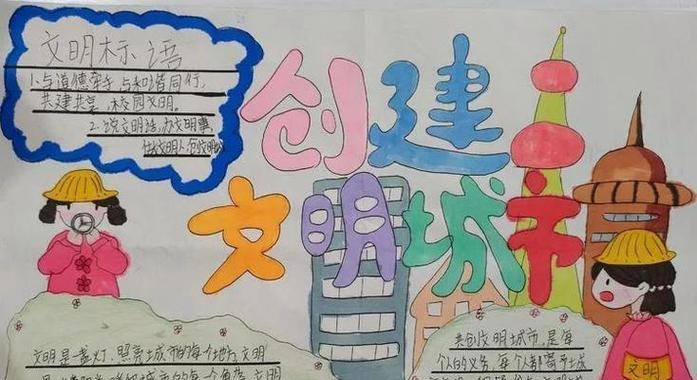 文明标语
1.与道德牵手,与和谐同行,
共建共享,校园文明。
2.说文明话,办文明事,
做文明人,创文明城
创建
文明城市
文明是一盏灯,照亮城市的每个地方,文明
城市的每一个角落,文明
共创文明城市,是每
个人的义务,每个人都需
文明